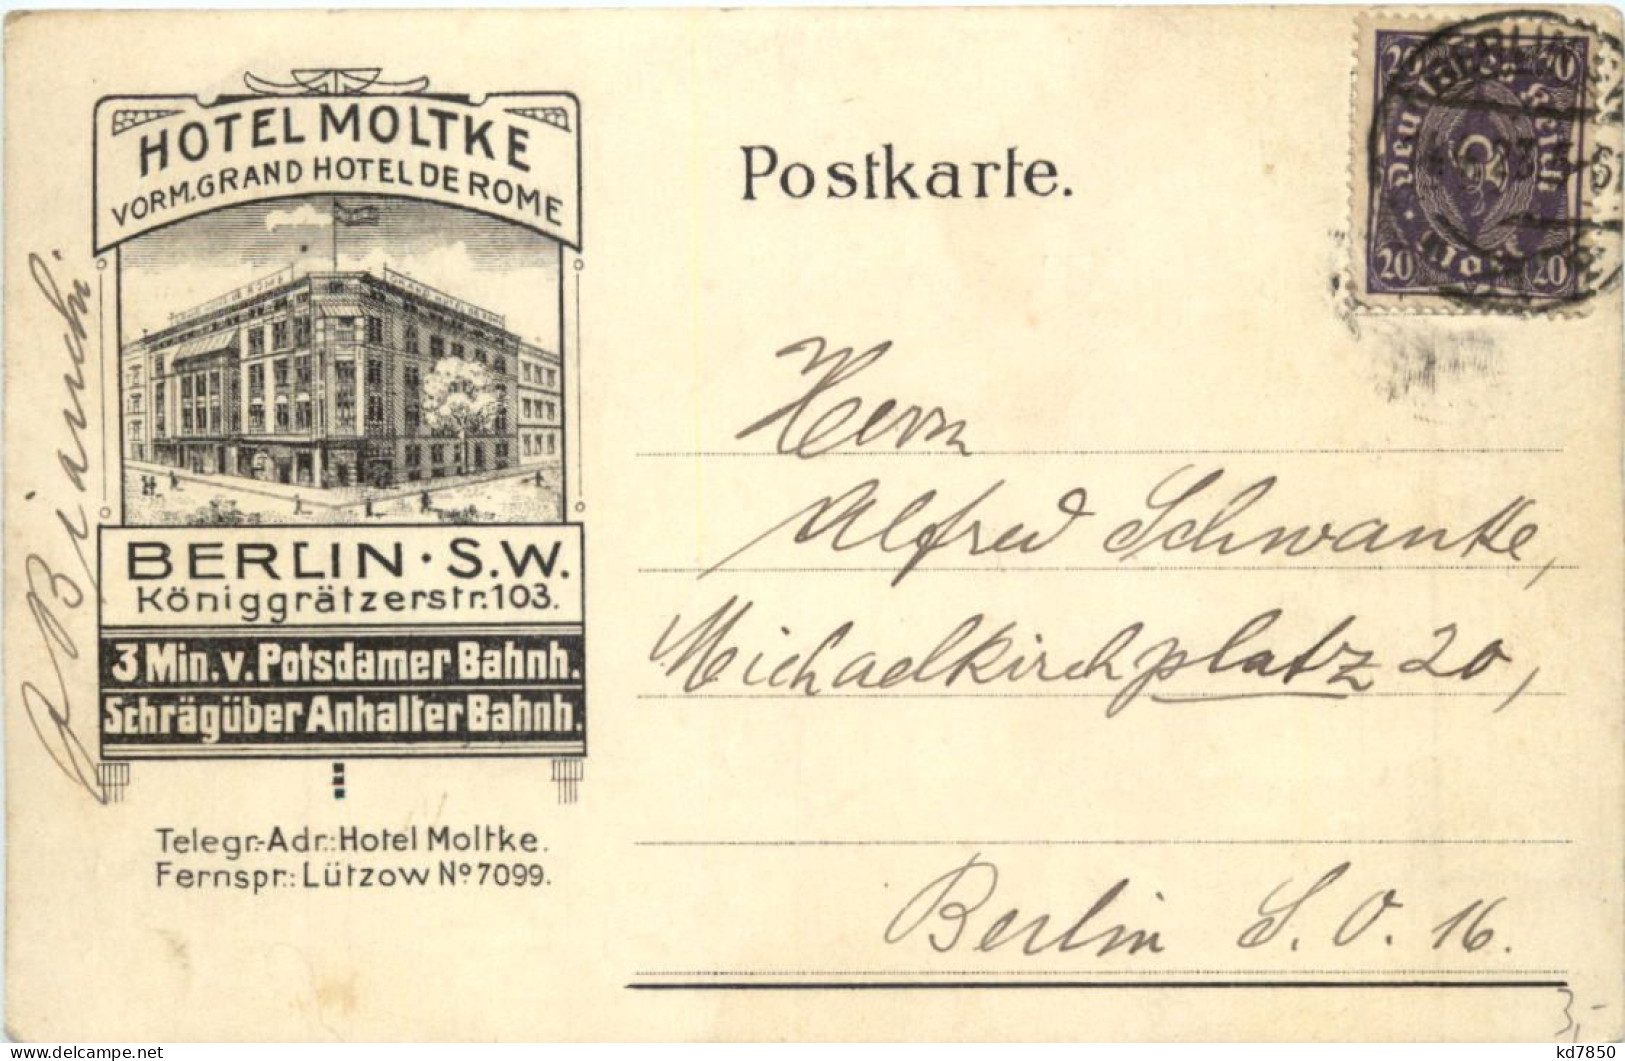 HOTEL MOLTKE
VORM. GRAND HOTEL DE ROME
GRAND HOTEL DE ROME
BERLIN · S.W.
Königgrätzerstr. 103.
3 Min. v. Potsdamer Bahnh.
Schrägüber Anhalter Bahnh.
Telegr.-Adr.: Hotel Moltke.
Fernspr.: Lützow No 7099.
Bianchi
Postkarte.
20
Deutsches Reich
20 20
BERLIN
Herrn
Alfred Schwantke,
Michaelkirchplatz 20,
Berlin S. O. 16.
3,-
kd7850